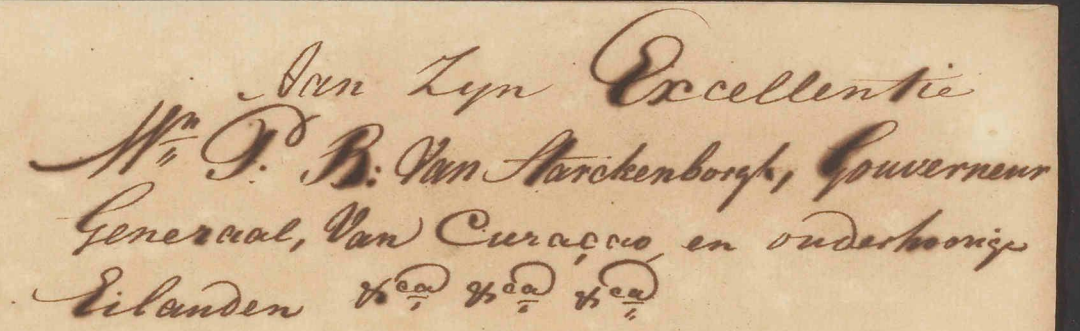 Aan Zyn Excellentie
Mr. P. B: Van Starckenborgh, Gouverneur
Generaal, Van Curaçao, en onderhoorige
Eilanden &ca &ca &ca